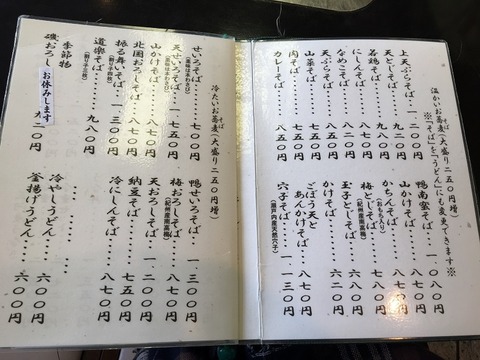 温かいお蕎麦(大盛り二五〇円増)
※「そば」を「うどん」にも変更できます※
上天ぷらそば
天とじそば・・・・九二〇円
若鶏そば・・・・
にしんそば・・・・
なめこそば・・・・八二〇円
天ぷらそば・・・・
山菜そば・・・・七五〇円
肉そば・・・・
カレーそば・・・・八五〇円
鴨南蛮そば・・・一、〇八〇円
山かけそば・・・・八七〇円
かちんそば・・・・八二〇円
(おもち入り)
梅とじそば・・・・八七〇円
(紀州産南高梅)
玉子とじそば・・・
かけそば・・・・六二〇円
ごぼう天と
あんかけそば・・・八七〇円
穴子そば・・・・一、一三〇円
(瀬戸内産天然穴子)
冷たいお蕎麦(大盛り二五〇円増)
せいろそば・・・・七〇〇円
(薬味は本わさび)
天せいろそば・・・
(薬味は本わさび)
山かけそば・・・・八七〇円
北国おろしそば・・・七五〇円
振る舞いそば・・一、三〇〇円
(割り子四枚)
道楽そば・・・・九八〇円
(割り子三枚)
季節物
磯おろし お休みします 二〇円
鴨せいろそば・・・一、三〇〇円
梅おろしそば・・・八七〇円
(紀州産南高梅)
天おろしそば・・・一、二〇〇円
納豆そば・・・・七五〇円
冷にしんそば・・・八七〇円
冷やしうどん・・・六〇〇円
釜揚げうどん・・・六〇〇円